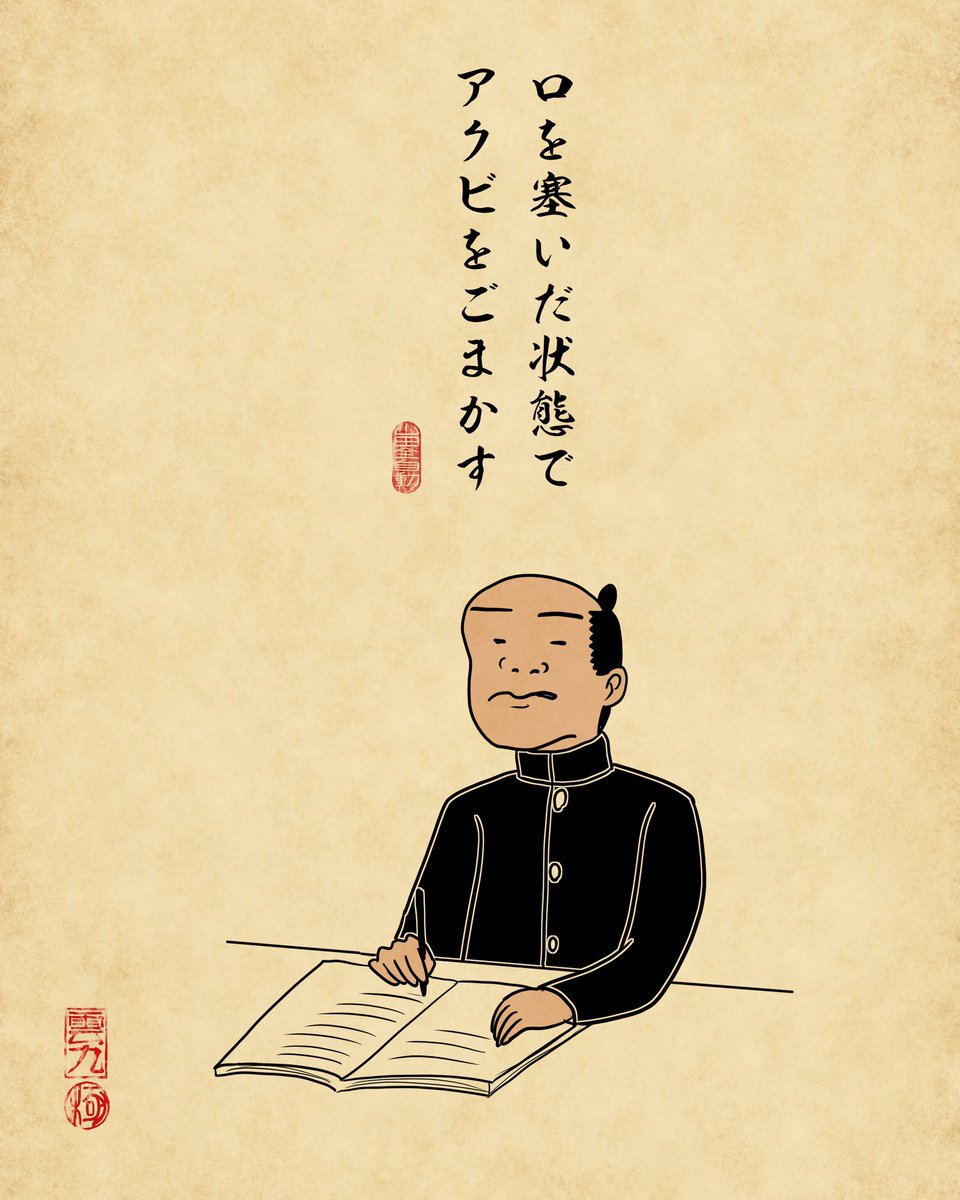 口を塞いだ状態で
アクビをごまかす